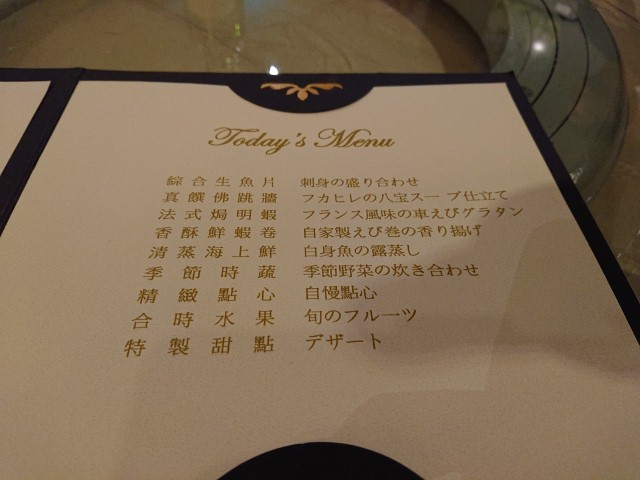 Today's Menu
綜合生魚片 刺身の盛り合わせ
真饌佛跳牆 フカヒレの八宝スープ仕立て
法式焗明蝦 フランス風味の車えびグラタン
香酥鮮蝦卷 自家製えび巻の香り揚げ
清蒸海上鮮 白身魚の露蒸し
季節時蔬 季節野菜の炊き合わせ
精緻點心 自慢點心
合時水果 旬のフルーツ
特製甜點 デザート